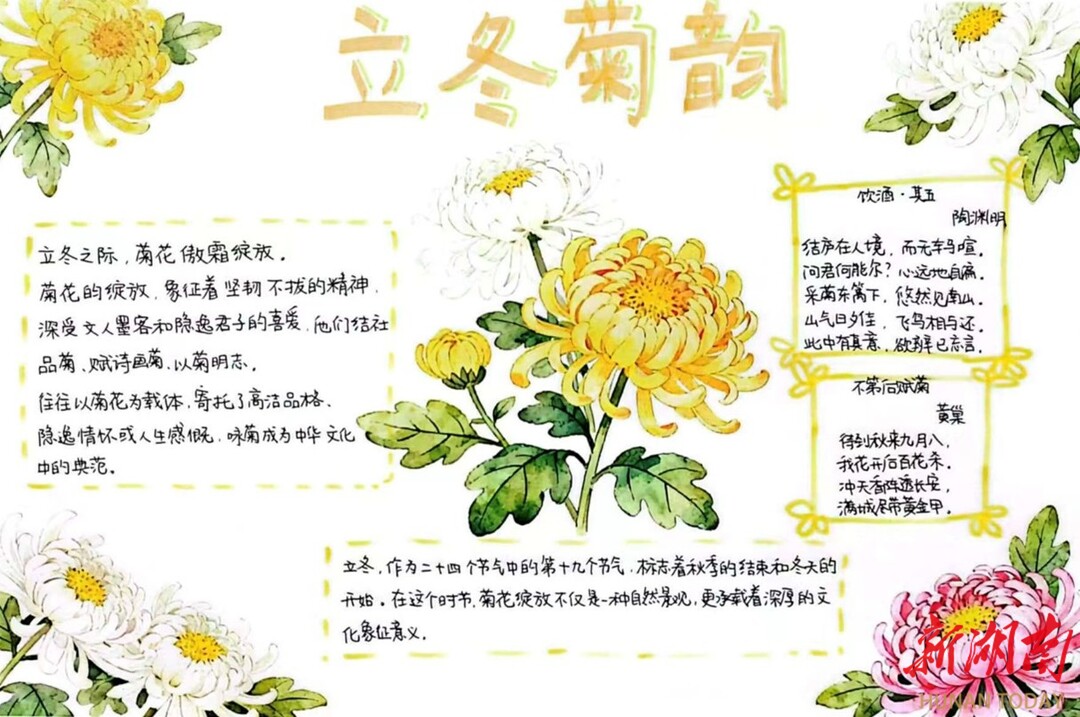 立冬菊韵
立冬之际，菊花傲霜绽放。
菊花的绽放，象征着坚韧不拔的精神，
深受文人墨客和隐逸君子的喜爱，他们结社
品菊、赋诗画菊、以菊明志。
往往以菊花为载体，寄托了高洁品格、
隐逸情怀或人生感慨，咏菊成为中华文化
中的典范。
饮酒·其五
陶渊明
结庐在人境，而无车马喧。
问君何能尔？心远地自偏。
采菊东篱下，悠然见南山。
山气日夕佳，飞鸟相与还。
此中有真意，欲辨已忘言。
不第后赋菊
黄巢
待到秋来九月八，
我花开后百花杀。
冲天香阵透长安，
满城尽带黄金甲。
立冬，作为二十四个节气中的第十九个节气，标志着秋季的结束和冬天的
开始。在这个时节，菊花绽放不仅是一种自然景观，更承载着深厚的文
化象征意义。
新湖南
HUNAN TODAY